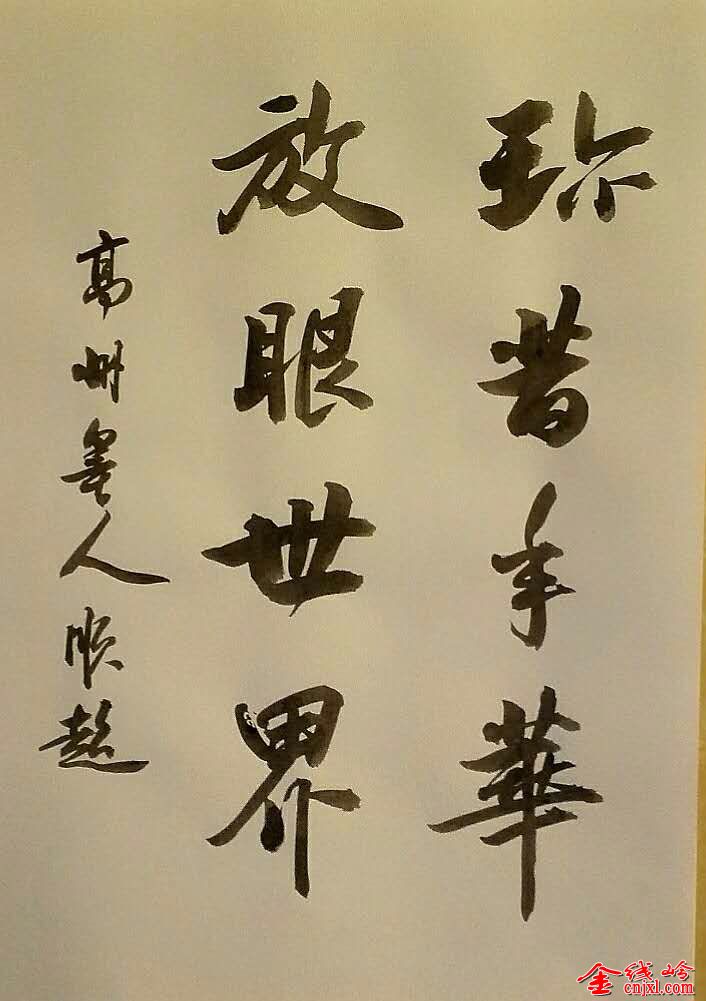 珎昔年華
放眼世界
高州墨人順超
金线岭
cnjxl.com